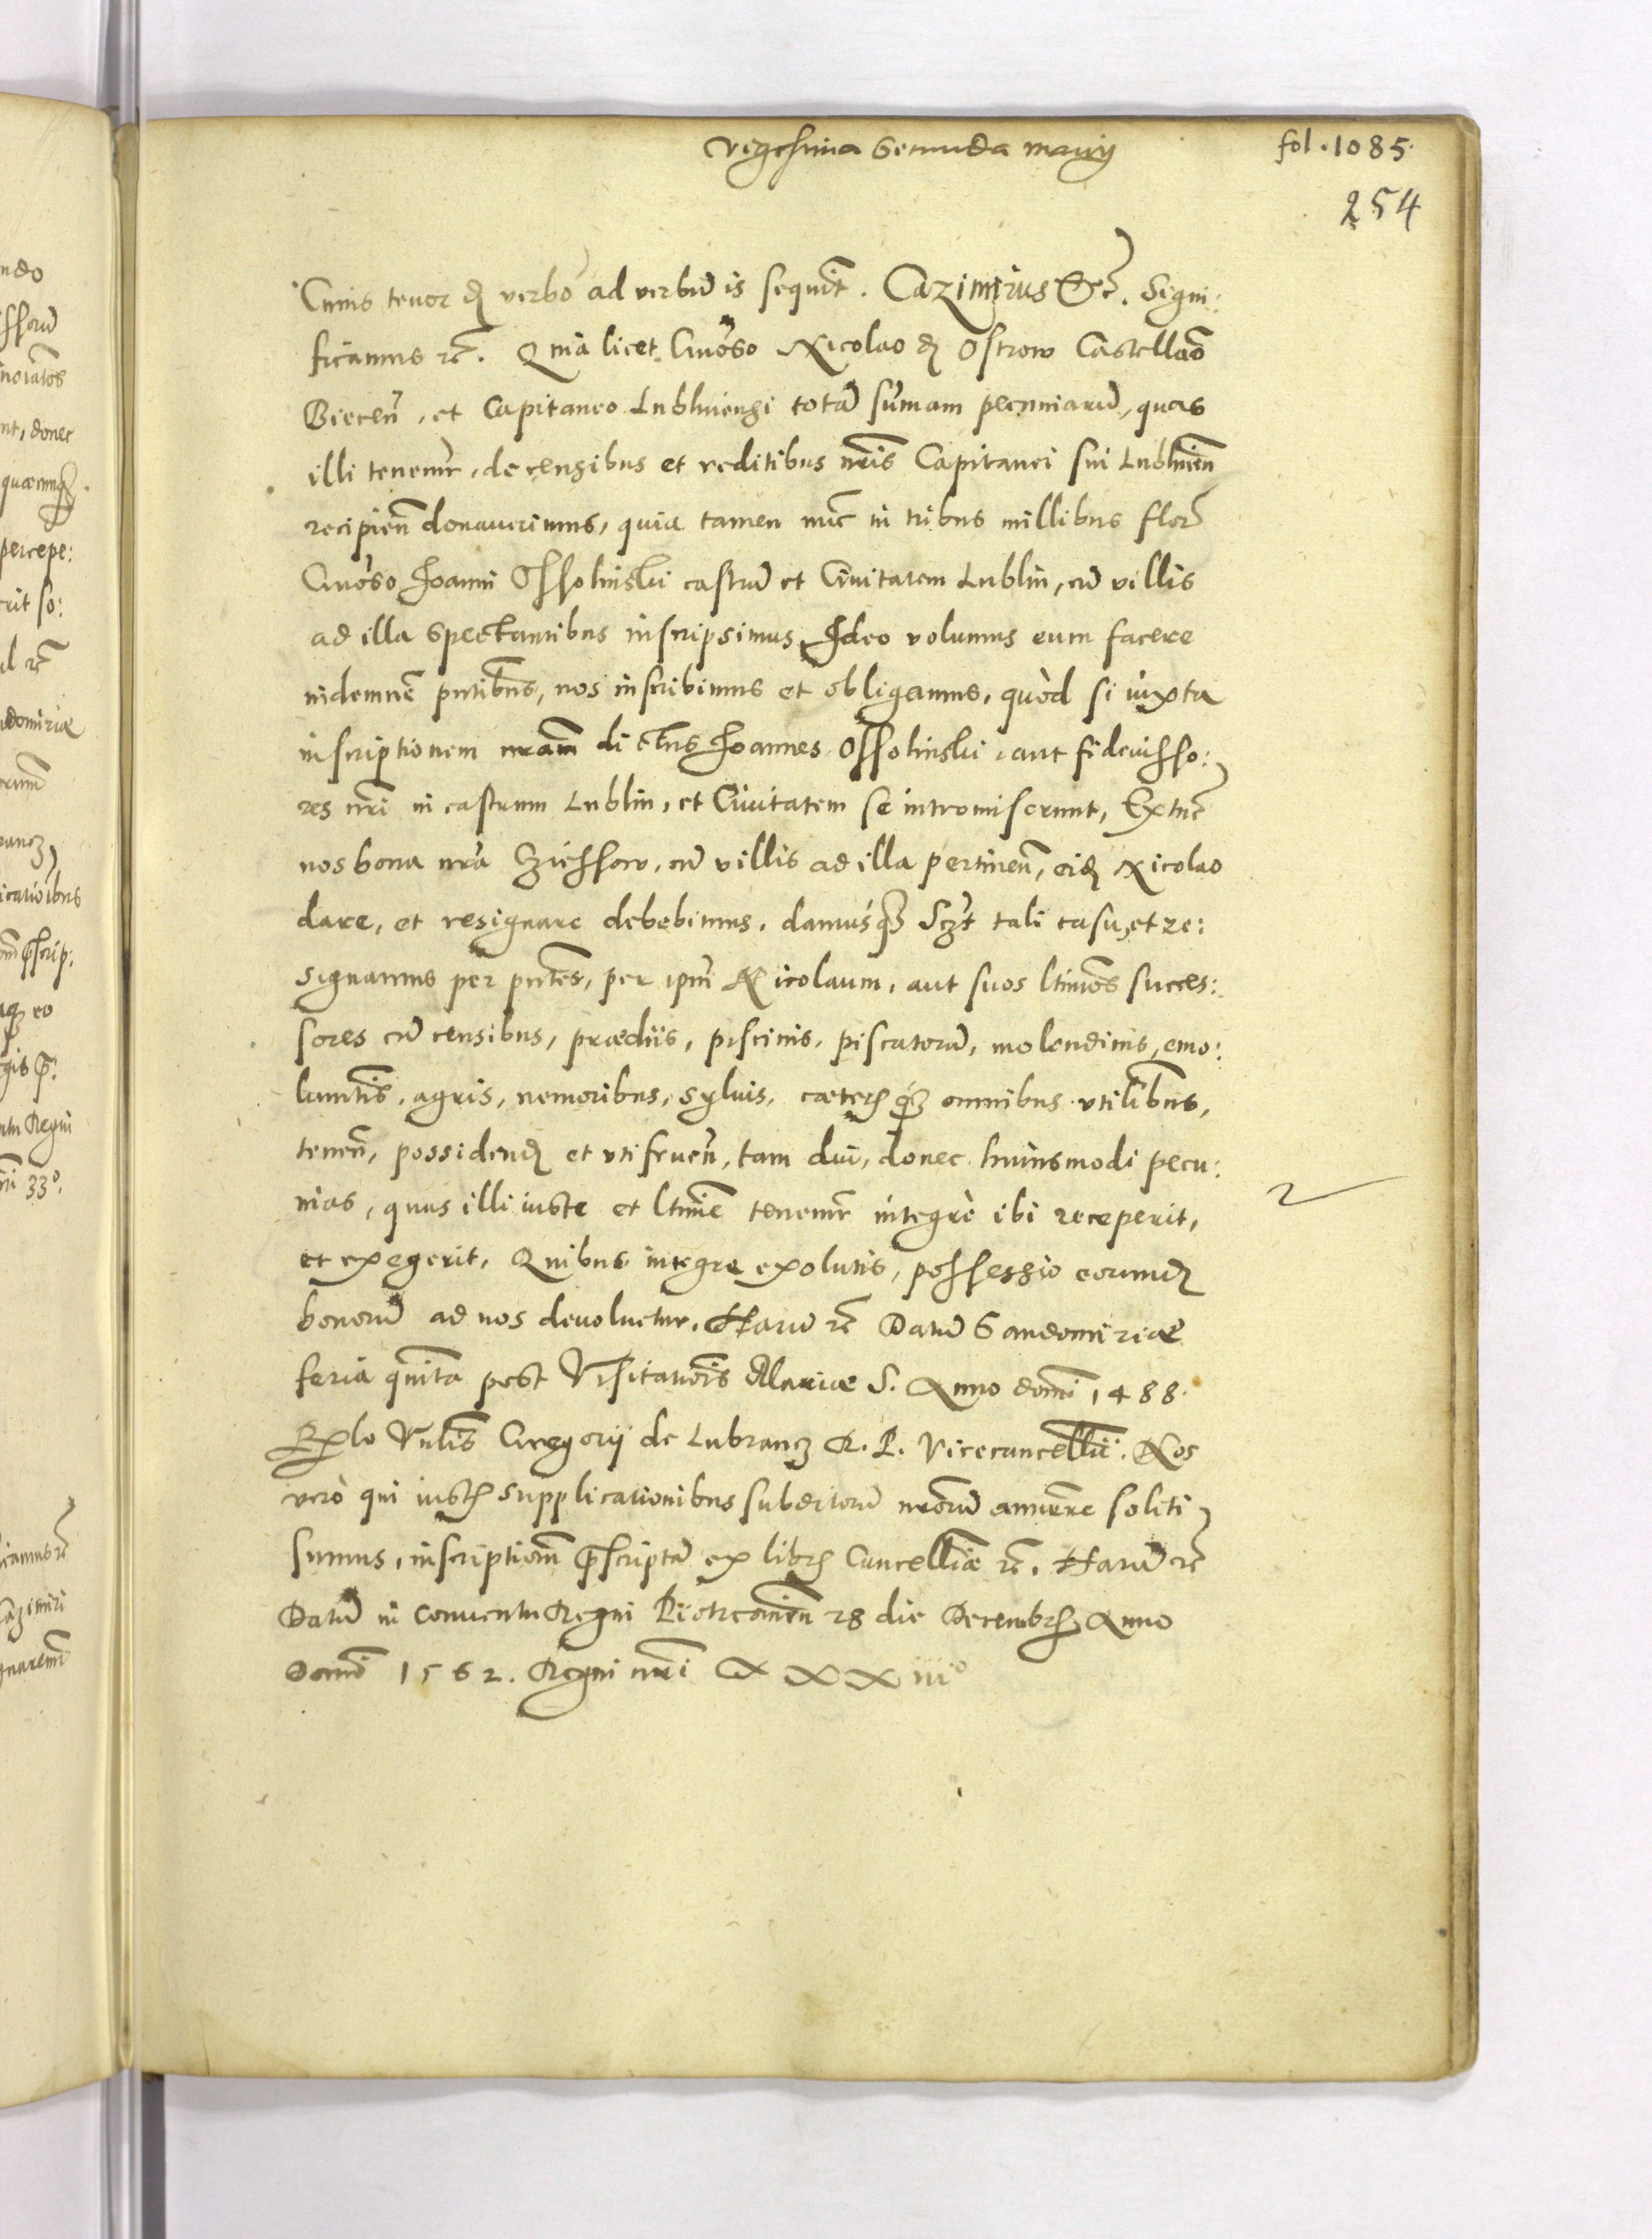 vigesima secunda maij
fol. 1085.
254
Cuius tenor d verbo ad verbū is sequit̄. Cazimirus Etc̄. Signi:
ficamus rc̄. Quia licet Gnōso Nicolao d Ostrow Castellāo
Biecen̄, et Capitaneo Lubliniensi totā sūmam pecuniarū, quas
illi tenemr̄, de censibus et reditibus nr̄is Capitanei sui Lublinien̄
recipien̄ donaverimus, quia tamen nūc in tribus millibus flor̄
Gnōso Joanni Ossolinski castrū et Civitatem Lublin, cū villis
ad illa spectantibus inscripsimus, Ideo volumus eum facere
indemnē pn̄tibus, nos inscribimus et obligamus, quòd si iuxta
inscriptionem nr̄am dictus Joannes Ossolinski, aut fideiusso:
res nr̄i in castrum Lublin, et Civitatem se intromiserunt, Extūc
nos bona nr̄a , cū villis ad illa pertinen̄, eid Nicolao
dare, et resignare debebimus, damusq3 tali casu, et re:
signamus per pn̄tes, per ipm̄ Nicolaum, aut suos ltīmos succes:
sores cū censibus, prædiis, piscinis, piscatorū, molendinis, emo:
lumn̄tis, agris, nemoribus, sylvis, cæterisq3 omnibus vtilibus,
tenen̄, possidend et vtifruen̄, tam diu, donec huiusmodi pecu:
nias, quas illi iuste et ltīme tenemr̄ integrè ibi receperit,
et exegerit, Quibus integre exolutis, possessio eorund
bonorū ad nos devoluetur. Harū rc̄ Datū Sandomiriæ
feria quīta post Visitatiōis Mariæ S. Anno domī 1488.
Rℓo Vn̄lis Gregorij de Lubrancz R. P. Vicecancellīi. Nos
verò qui iustis supplicationibus subditorū nr̄orū annuere soliti
sumus, inscriptiōm p̄scriptā ex libris Cancellīæ rc̄. Harū rc̄
Datū in Conventu Regni Piotrconien̄ 28 die Decembris Anno
Domī 1562. Regni nr̄i XXXiii°
2
ndo
ssorū
nt, donec
percepe:
rit so:
domiriæ
icatiōibus
ni 33°.